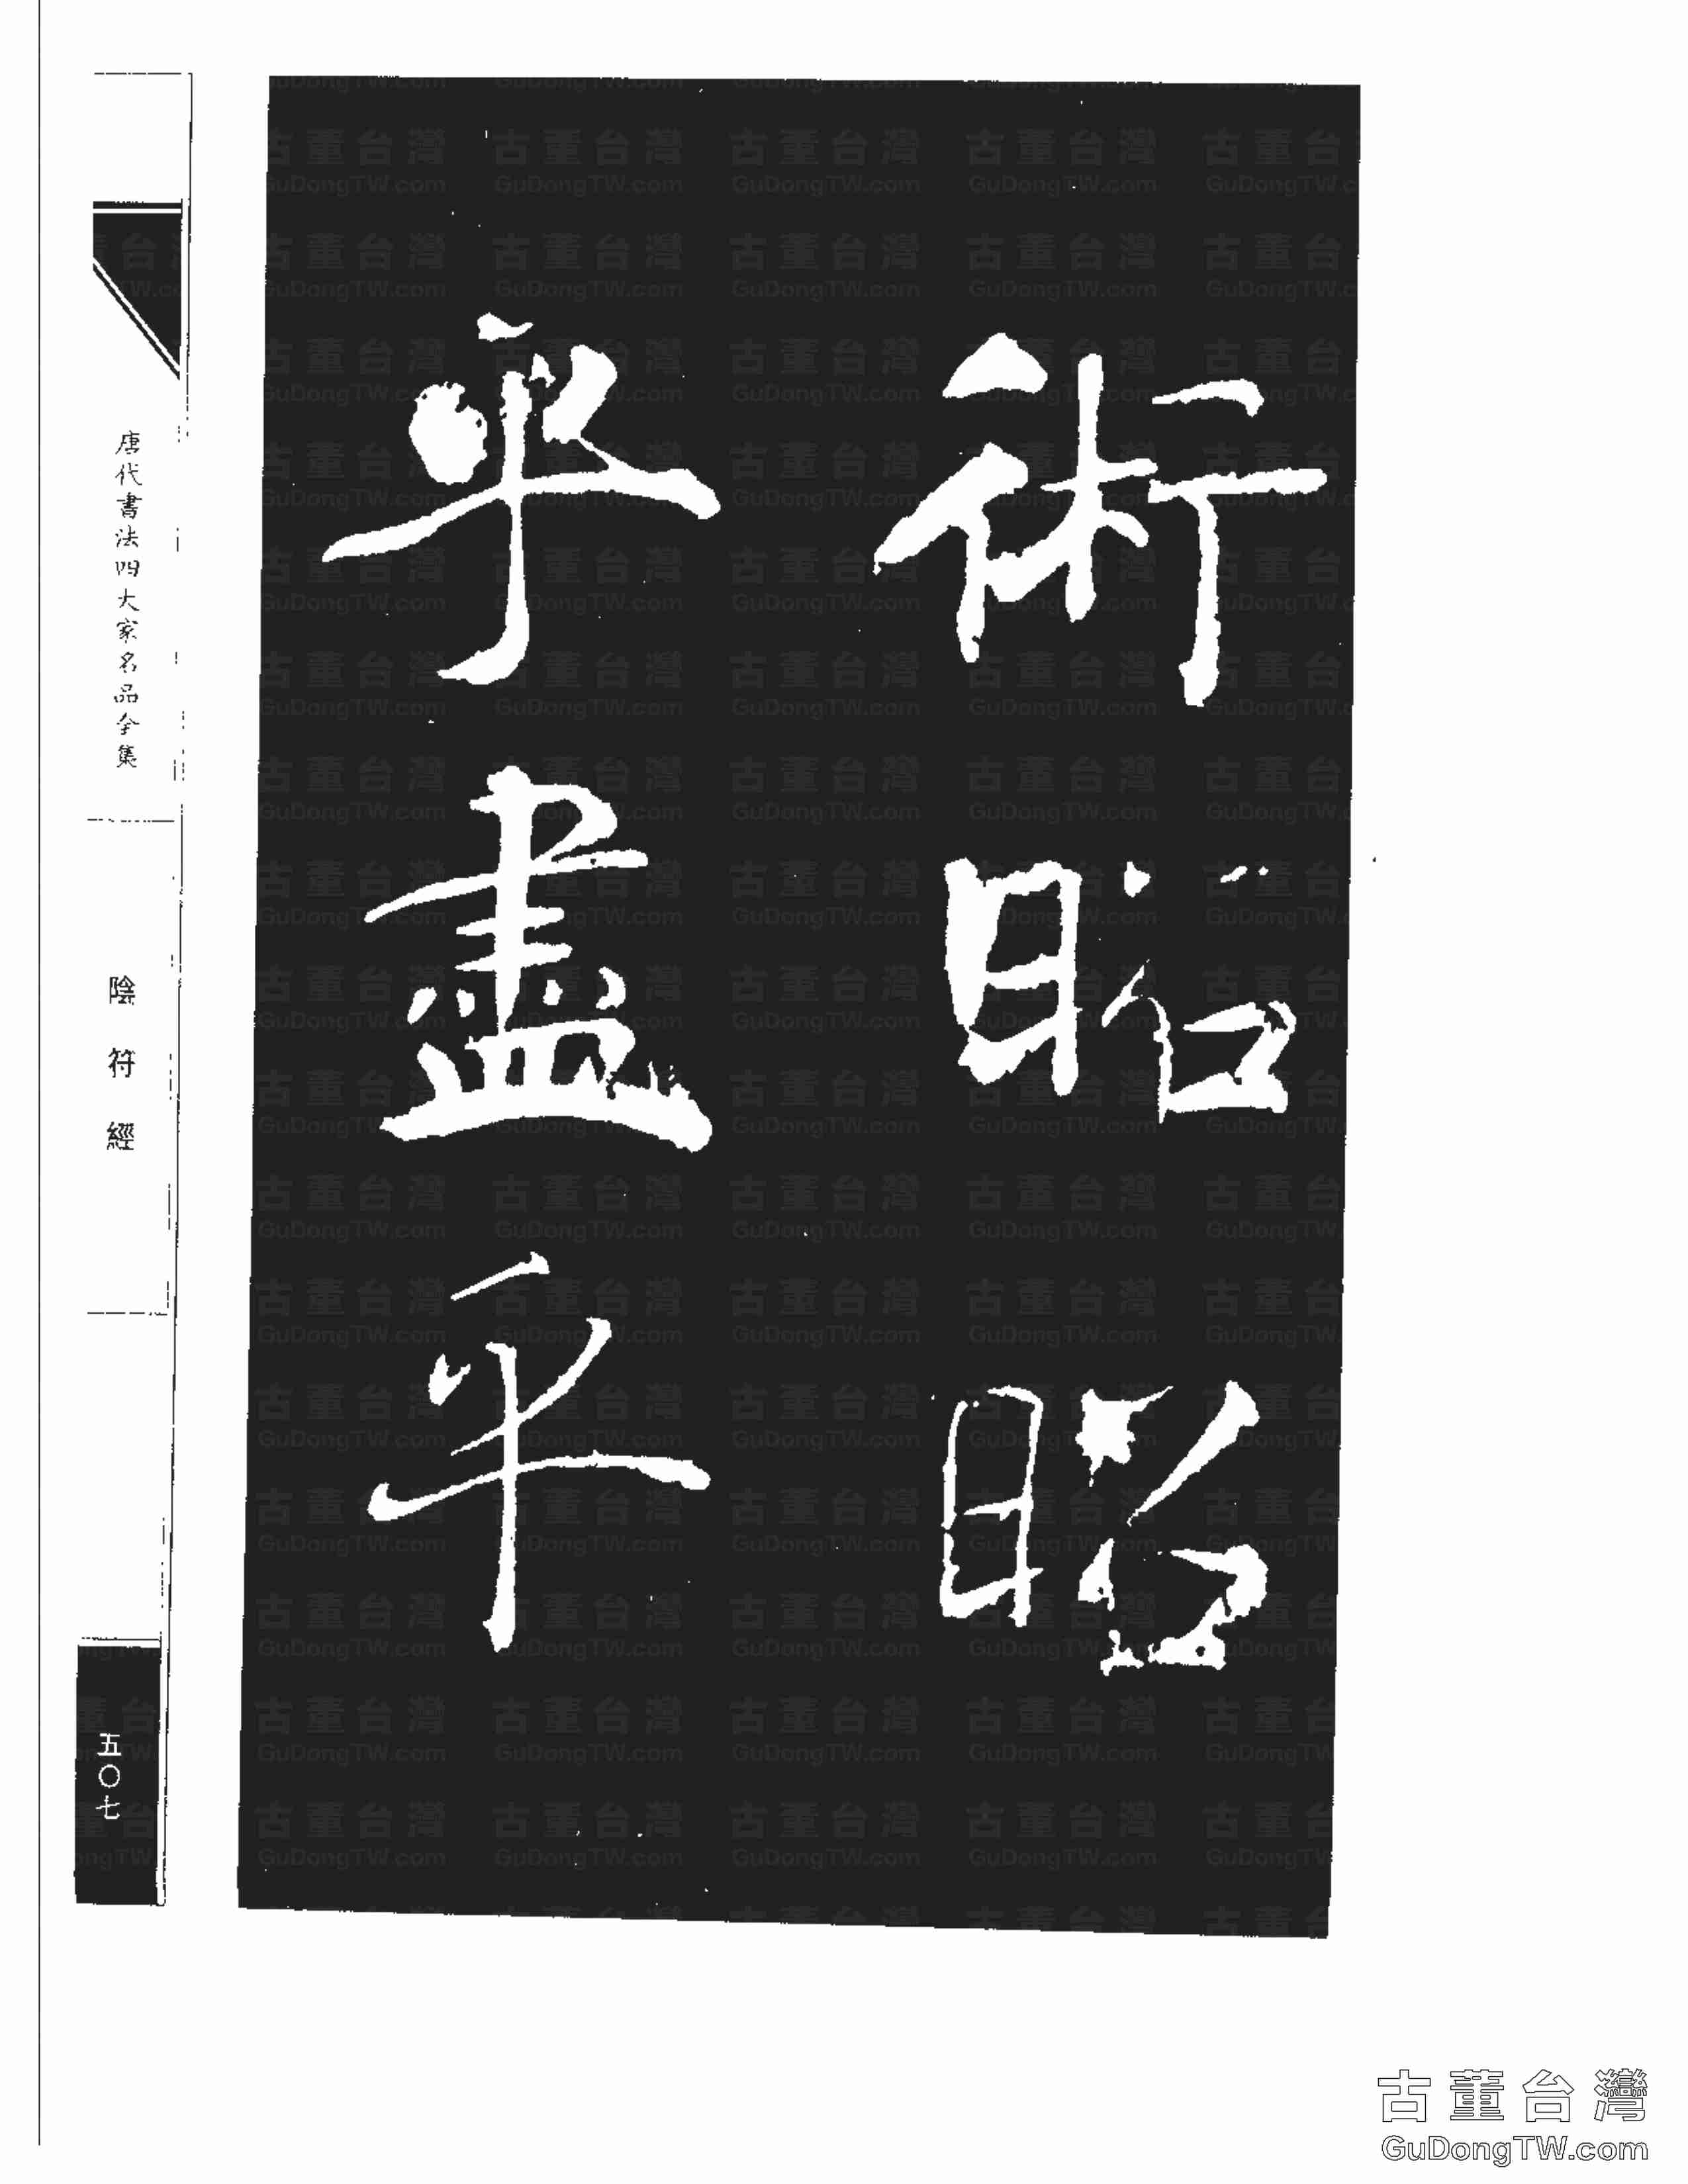 術昭昭
乎盡乎
唐代書法四大家名品全集
陰符經
五〇七
古董台灣
GuDongTW.com